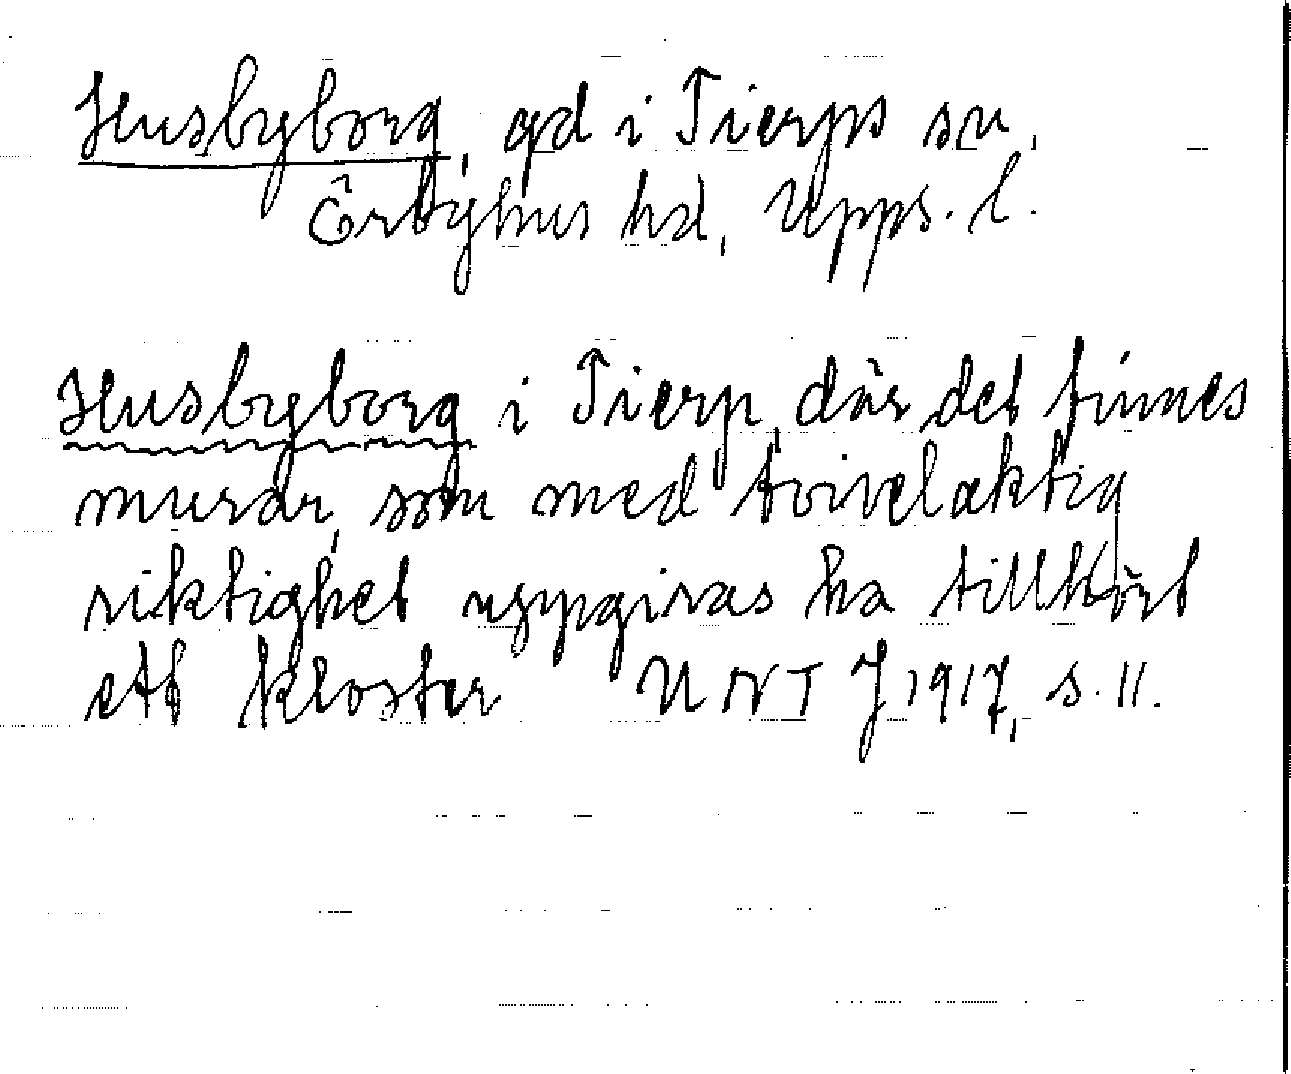 Husbyborg, gd i Tierps sn,
Örbyhus hd, Upps. l.
Husbyborg i Tierp, där det finnes
murar, som med tvivelaktig
riktighet uppgivas ha tillhört
ett kloster UNT J 1917, s. 11.